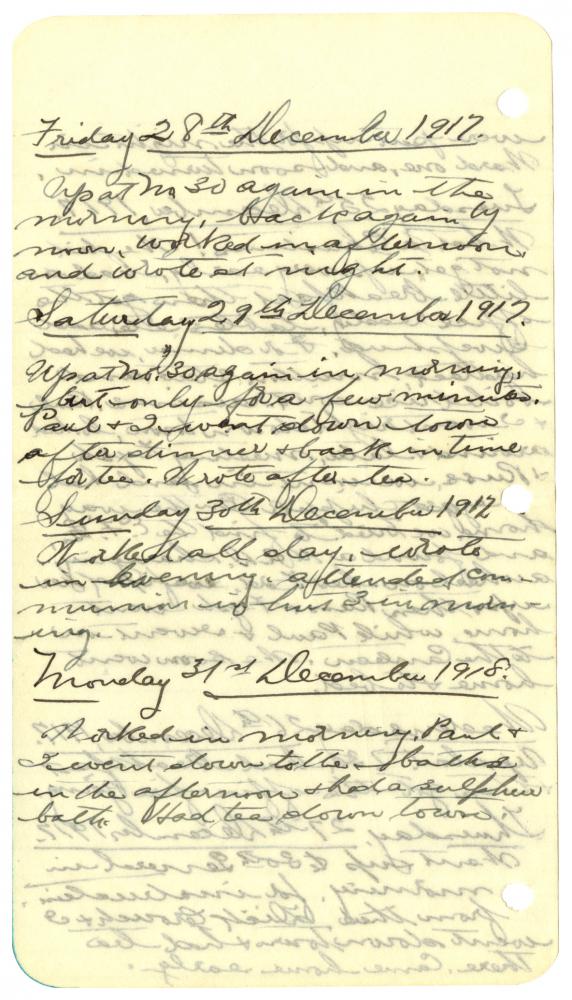 Friday 28th December 1917.
Up at No 30 again in the
morning, back again by
noon, worked in afternoon
and wrote at night.
Saturday 29th December 1917.
Up at No. 30 again in morning,
but only for a few minutes.
Paul & I went down town
after dinner & back in time
for tea. Wrote after tea.
Sunday 30th December 1917
Worked all day, wrote
in evening. attended com-
munion in hut 3 in morn-
ing.
Monday 31st December 1918.
Worked in morning. Paul &
I went down to the baths
in the afternoon & had a sulpheur
bath. Had tea down town.